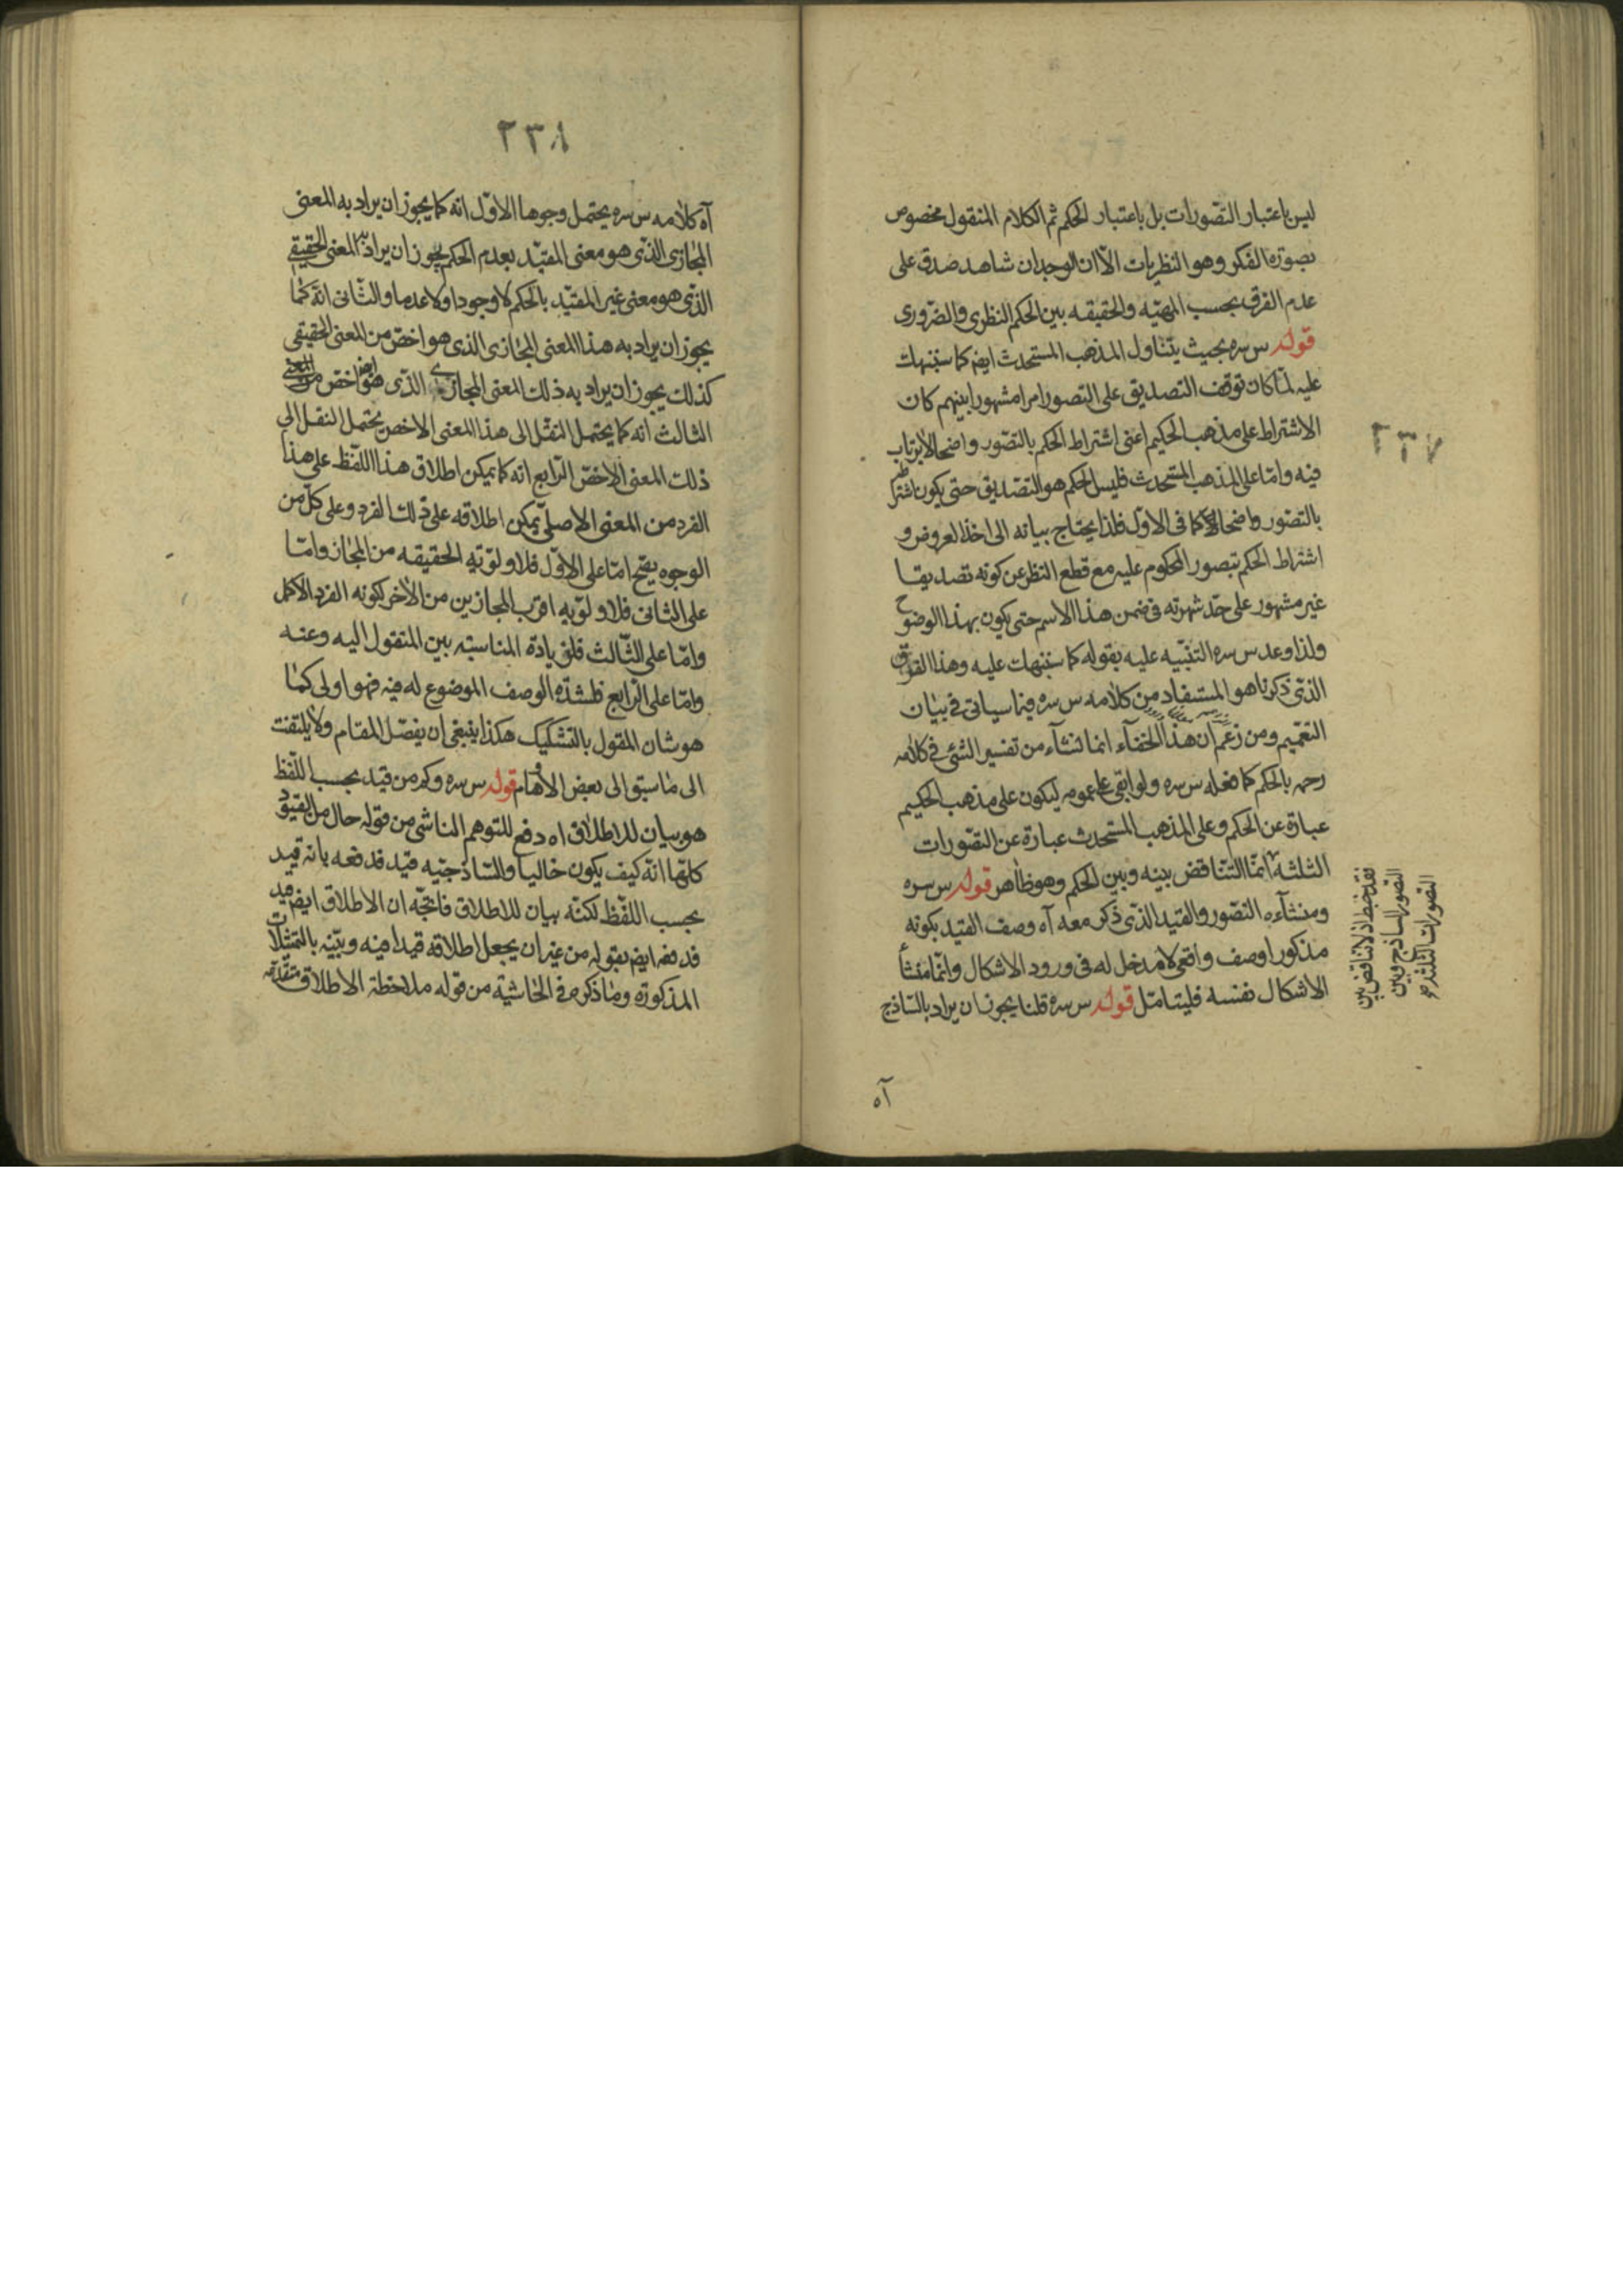 ٢٣٧
ليس باعتبار التصورات بل باعتبار الحكم ثم الكلام المنقول مخصوص
بصورة الفكر وهو النظريات الا ان الوجدان شاهد صدق على
عدم الفرق بحسب المهيّه والحقيقه بين الحكم النظرى والضرورى
قوله س سره بحيث يتناول المذهب المستحدث ايضا كما سننبهك
عليه لما كان توقف التصديق على التصور امرا مشهورا بينهم كان
الاشتراط على مذهب الحكيم اعنى اشتراط الحكم بالتصور واضحا لا يرتاب
فيه واما على المذهب المستحدث فليس الحكم هو التصديق حتى يكون اشتراط
بالتصور واضحا كما فى الاول فلذا يحتاج بيانه الى اخذ العروض و
اشتراط الحكم بتصور المحكوم عليه مع قطع النظر عن كونه تصديقا
غير مشهور على حد شهرته فى ضمن هذا الاسم حتى يكون بهذا الوضوح
ولذا وعد س سره التنبيه عليه بقوله كما سننبهك عليه وهذا الفرق
الذى ذكرنا هو المستفاد من كلامه س سره فيما سياتى فى بيان
التعميم ومن زعم ان هذا الخفآء انما نشآء من تفسير الشئ فى كلامه
رحمه بالحكم كما فعله س سره ولو ابقى على عمومه ليكون على مذهب الحكيم
عبارة عن الحكم وعلى المذهب المستحدث عبارة عن التصورات
الثلثه انما التناقض بينه وبين الحكم وهو ظاهر قوله س سره
ومنشآءه التصور والقيد الذى ذكر معه آه وصف القيد بكونه
مذكورا وصف واقعى لا مدخل له فى ورود الاشكال وانما منشأ
الاشكال نفسه فليتامل قوله س سره قلنا يجوز ان يراد بالساذج
آه
فقد خبط اذ لا تناقض بين
التصور الساذج وبين
التصورات الثلثه
٢٣٨
آه كلامه س سره يحتمل وجوها الاول انه كما يجوز ان يراد به المعنى
المجازى الذى هو معنى المقيد بعدم الحكم يجوز ان يراد به المعنى الحقيقى
الذى هو معنى غير المقيد بالحكم لا وجودا ولا عدما والثانى انه كما
يجوز ان يراد به هذا المعنى المجازى الذى هو اخص من المعنى الحقيقى
كذلك يجوز ان يراد به ذلك المعنى المجازى الذى هو ايضا اخص من المعنى
الثالث انه كما يحتمل النقل الى هذا المعنى الاخص يحتمل النقل الى
ذلك المعنى الاخص الرابع انه كما يمكن اطلاق هذا اللفظ على هذا
الفرد من المعنى الاصلى يمكن اطلاقه على ذلك الفرد وعلى كل من
الوجوه يفتح اما على الاول فلاولويه الحقيقه من المجاز واما
على الثانى فلاولويه اقرب المجازين من الاخر لكونه الفرد الاكمل
واما على الثالث فلزيادة المناسبه بين المنقول اليه وعنه
واما على الرابع فلشدة الوصف الموضوع له فيه فهو اولى كما
هو شان المقول بالتشكيك هكذا ينبغى ان يفصل المقام ولا يلتفت
الى ما سبق الى بعض الاوهام قوله س سره وكم من قيد بحسب اللفظ
هو بيان للاطلاق اه دفع للتوهم الناشى من قوله حال من القيود
كلها انه كيف يكون خاليا والساذجيه قيد فدفعه بانه قيد
بحسب اللفظ لكنه بيان للاطلاق فاتجه ان الاطلاق ايضا قيد
فدفعه ايضا بقوله من غير ان يجعل اطلاقه قيدا فيه وبينه بالتمثلات
المذكورة وما ذكره فى الحاشية من قوله ملاحظة الاطلاق متقدمه